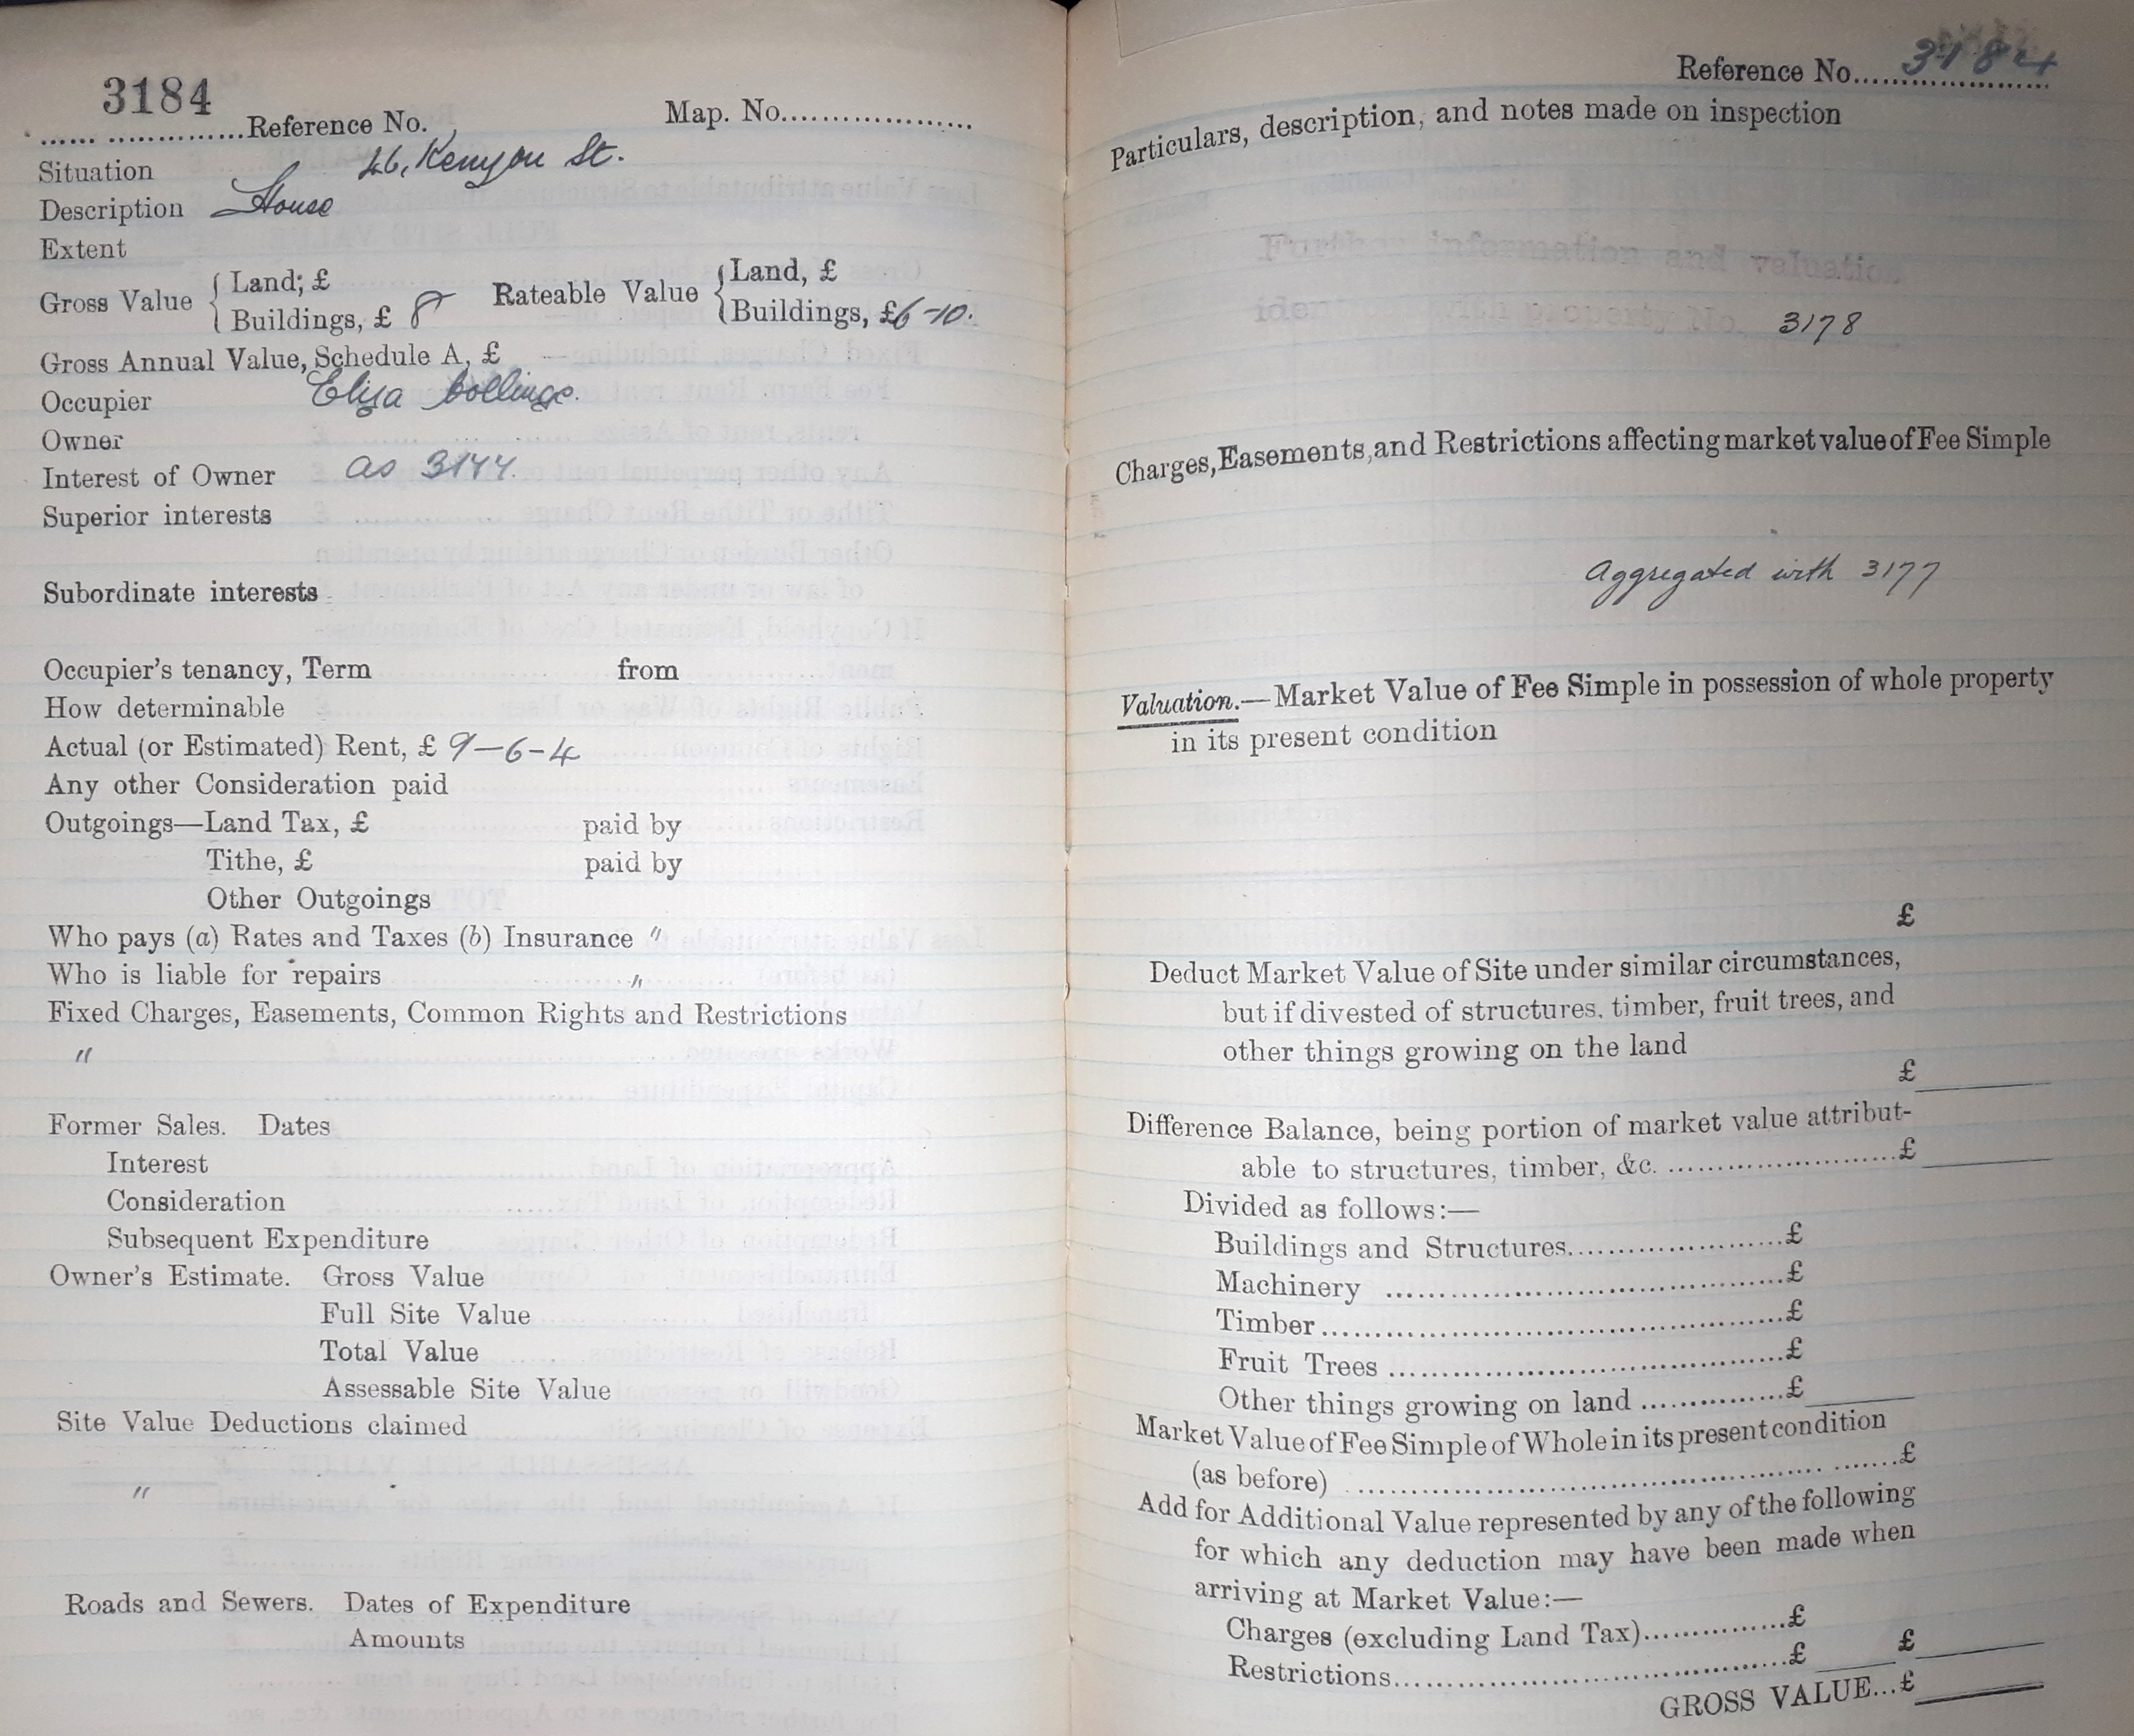 3184
...... ..............Reference No.
Map. No....................
Situation 46, Kenyon St.
Description House
Extent
Gross Value { Land; £
Buildings, £ 8
Rateable Value { Land, £
Buildings, £6-10.
Gross Annual Value, Schedule A, £ —
Occupier Eliza Collings.
Owner
Interest of Owner as 3177.
Superior interests
Subordinate interests
Occupier's tenancy, Term from
How determinable
Actual (or Estimated) Rent, £ 9-6-4
Any other Consideration paid
Outgoings—Land Tax, £ paid by
Tithe, £ paid by
Other Outgoings
Who pays (a) Rates and Taxes (b) Insurance "
Who is liable for repairs "
Fixed Charges, Easements, Common Rights and Restrictions
"
Former Sales. Dates
Interest
Consideration
Subsequent Expenditure
Owner's Estimate. Gross Value
Full Site Value
Total Value
Assessable Site Value
Site Value Deductions claimed
"
Roads and Sewers. Dates of Expenditure
Amounts
Reference No. 3184
Particulars, description, and notes made on inspection
Further information and valuation
ident with property No. 3178
Charges, Easements, and Restrictions affecting market value of Fee Simple
Aggregated with 3177
Valuation.—Market Value of Fee Simple in possession of whole property
in its present condition
£
Deduct Market Value of Site under similar circumstances,
but if divested of structures, timber, fruit trees, and
other things growing on the land
£
Difference Balance, being portion of market value attribut-
able to structures, timber, &c. ........................£
Divided as follows:—
Buildings and Structures......................£
Machinery ........................................£
Timber.............................................£
Fruit Trees .......................................£
Other things growing on land ..............£
Market Value of Fee Simple of Whole in its present condition
(as before) ......................................................£
Add for Additional Value represented by any of the following
for which any deduction may have been made when
arriving at Market Value:—
Charges (excluding Land Tax)..............£
Restrictions........................................£ £
GROSS VALUE...£